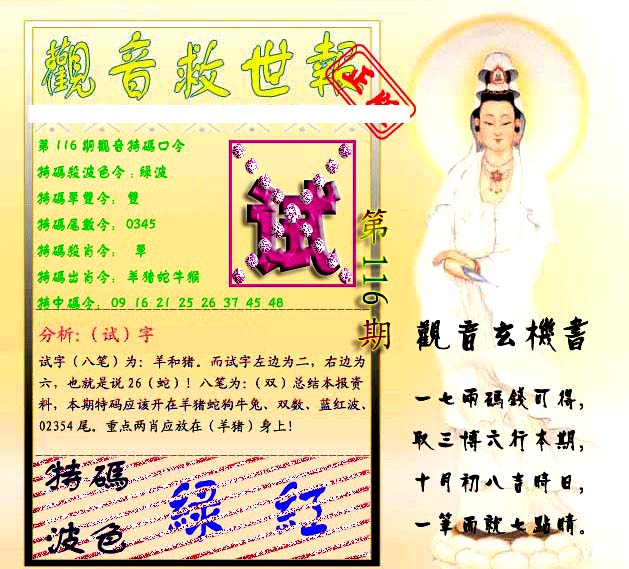 觀音救世報
第116期觀音特碼口令
特碼殺波色令：綠波
特碼單雙令： 雙
特碼尾數令： 0345
特碼殺肖令： 單
特碼出肖令： 羊豬蛇牛猴
特中碼令： 09 16 21 25 26 37 45 48
试
第116期
分析:（试）字
试字（八笔）为：羊和猪。而试字左边为二，右边为
六，也就是说26（蛇）！八笔为:（双）总结本报资
料，本期特码应该开在羊猪蛇狗牛兔、双数、蓝红波、
02354尾。重点两肖应放在（羊猪）身上！
特碼
波色
綠 紅
觀音玄機書
一七兩碼錢可得，
取三博六行本期，
十月初八吉時日，
一筆而就七點睛。